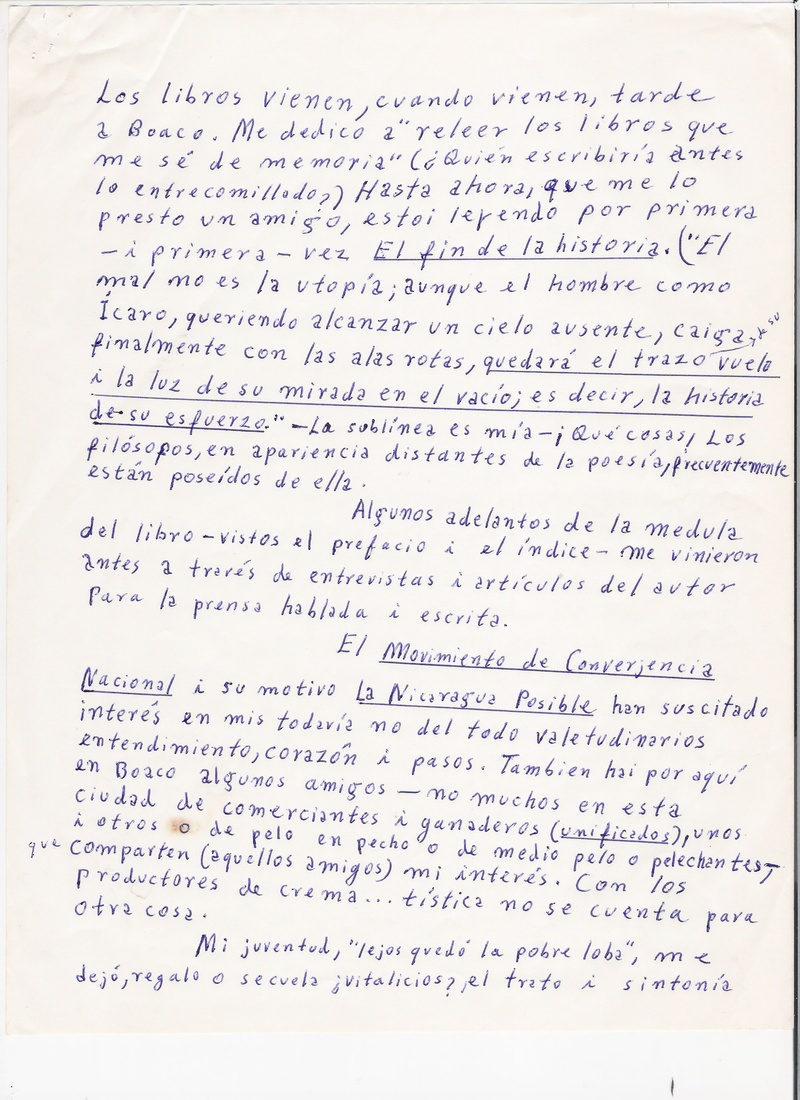 Los libros vienen, cuando vienen, tarde
a Boaco. Me dedico a "releer los libros que
me sé de memoria" (¿Quién escribiría antes
lo entrecomillado?) Hasta ahora, que me lo
presto un amigo, estoi leyendo por primera
– i primera – vez El fin de la historia. ("El
mal no es la utopía; aunque el hombre como
Ícaro, queriendo alcanzar un cielo ausente, caiga
finalmente con las alas rotas, quedará el trazo su vuelo
i la luz de su mirada en el vacío; es decir, la historia
de su esfuerzo." – La sublínea es mía – ¡Qué cosas! Los
filósopos, en apariencia distantes de la poesía, frecuentemente
están poseídos de ella.
Algunos adelantos de la medula
del libro – vistos el prefacio i el índice – me vinieron
antes a través de entrevistas i artículos del autor
para la prensa hablada i escrita.
El Movimiento de Converjencia
Nacional i su motivo La Nicaragua Posible han suscitado
interés en mis todavía no del todo valetudinarios
entendimiento, corazón i pasos. Tambien hai por aquí
en Boaco algunos amigos – no muchos en esta
ciudad de comerciantes i ganaderos (unificados), unos
i otros o de pelo en pecho o de medio pelo o pelechantes,
que comparten (aquellos amigos) mi interés. Con los
productores de crema... tística no se cuenta para
otra cosa.
Mi juventud, "lejos quedó la pobre loba", me
dejó, regalo o secuela ¿vitalicios?, el trato i sintonía